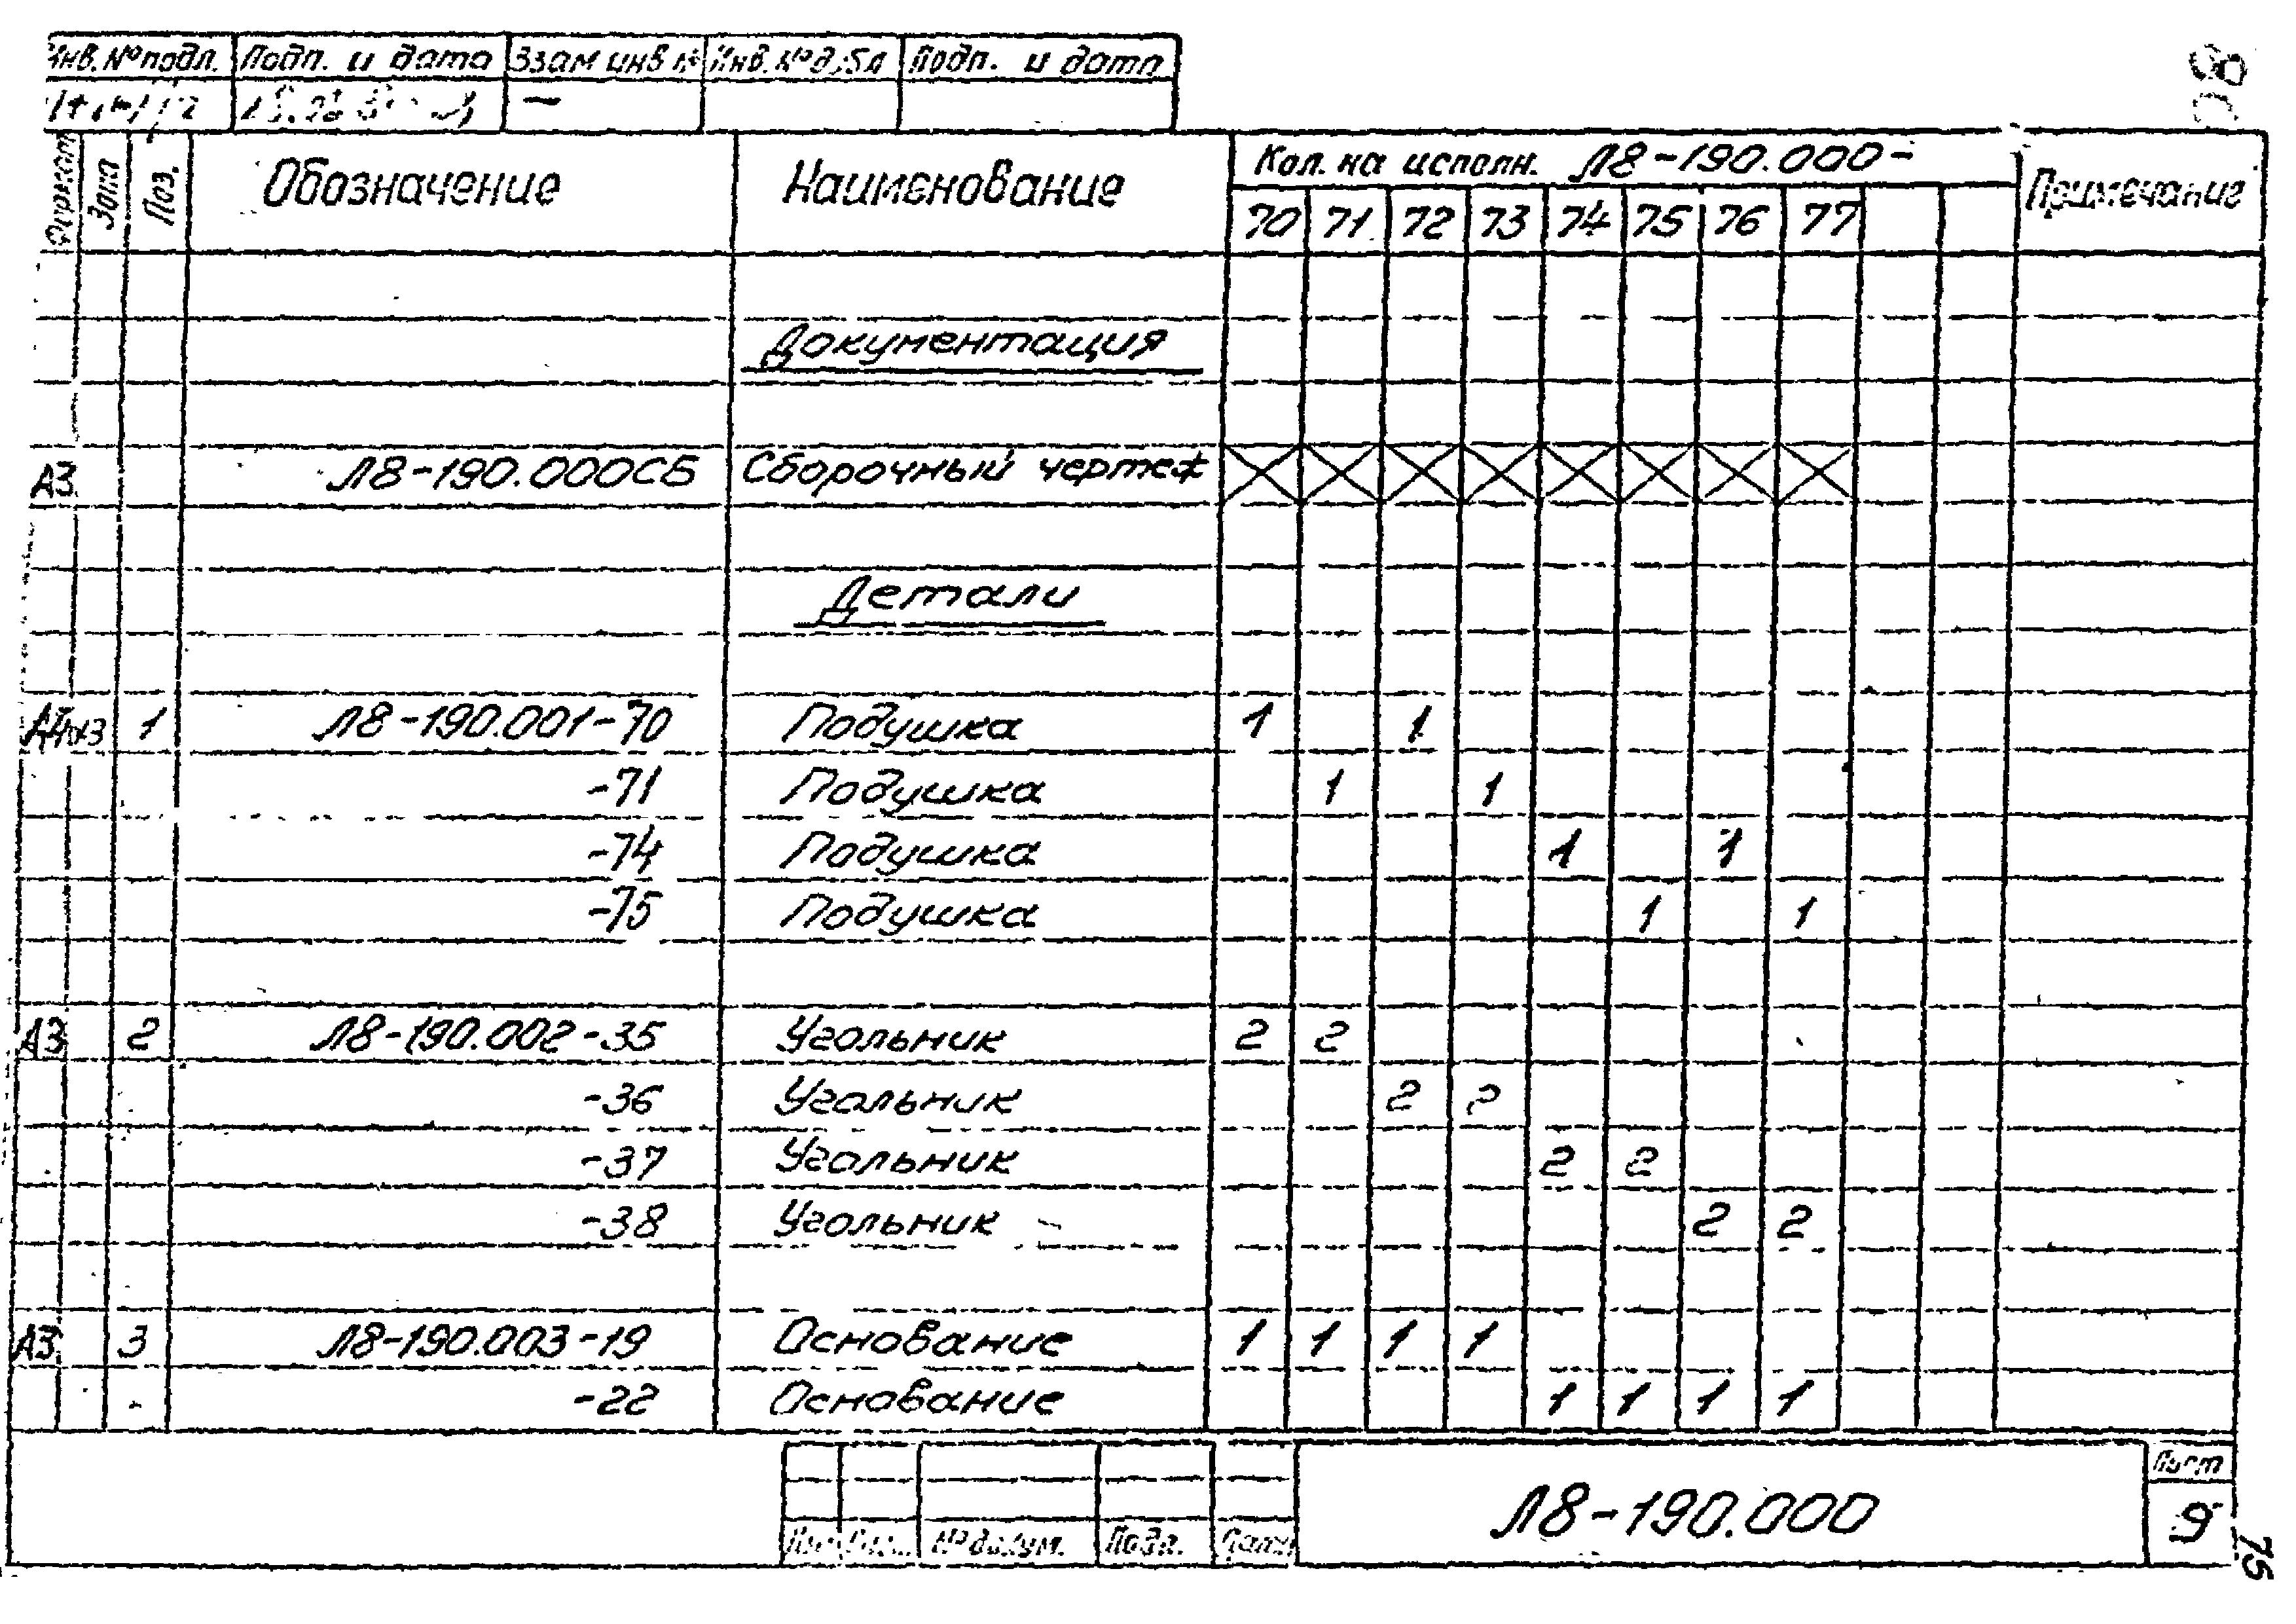 Инв. № подл. Подп. и дата Взам инв № Инв. № дубл Подп. и дата
—
Формат Зона Поз. Обозначение Наименование Кол. на исполн. Л8-190.000- Примечание
70 71 72 73 74 75 76 77
Документация
А3 Л8-190.000СБ Сборочный чертеж
Детали
1 Л8-190.001-70 Подушка 1 1
-71 Подушка 1 1
-74 Подушка 1 1
-75 Подушка 1 1
А3 2 Л8-190.002-35 Угольник 2 2
-36 Угольник 2 2
-37 Угольник 2 2
-38 Угольник 2 2
А3 3 Л8-190.003-19 Основание 1 1 1 1
-22 Основание 1 1 1 1
Л8-190.000
Лист
9
№ докум. Подп. Дата
75